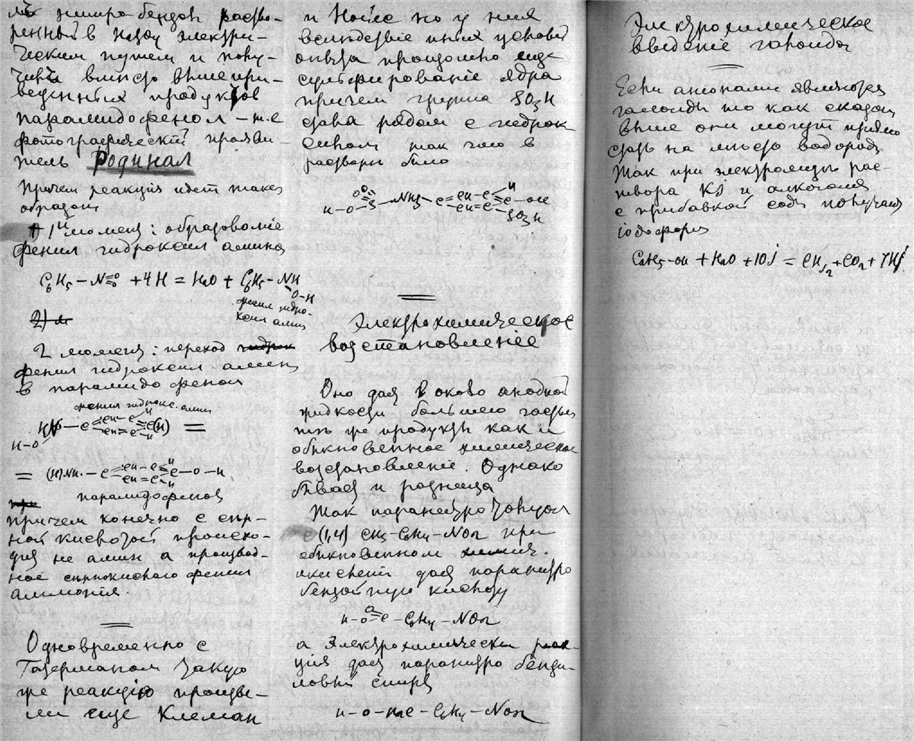 ренный в
ческим путем и полу-
чить вместо вышепри-
веденных продуктов
парамидофенол – т.е.
фотографический прояви-
тель Родинал
Причем реакция идет таким
образом
1й момент: образование
фенил гидроксил амина
C6H5 – N=O + 4H = H2O + C6H5 – NH
O–H
фенил гидро-
ксил амин
2)
2 момент: переход
фенил гидроксил амина
в парамидофенол
фенил гидрокс. амин
H–O
парамидофенол
причем конечно с сер-
ной кислотой происхо-
дит не амин а производ-
ное сернокислого фенил
аммония.
Одновременно с
Гатерманом такую
же реакцию произве-
ли еще Клеман
и Нойес но у них
вследствие иных условий
опыта произошло еще
сульфирование ядра
причем группа SO3H
стала рядом с гидрок
силом так что в
растворе было
SO3H
Электрохимическое
восстановление
Оно дает в
жидкости большею частью
те же продукты как и
обыкновенное химическое
восстановление. Однако
бывает и разница
Так паранитротолуол
(1,4) CH3–C6H4–NO2 при
обыкновенном химич.
окислении дает паранитро
бензойную кислоту
H–O–C–C6H4–NO2
а электрохимически реак-
ция дает паранитро бензи-
ловый спирт
–C6H4–NO2
Электрохимическое
введение галоидов
Если анионами являются
галоиды то как сказано
выше они могут прямо
стать на место водорода
Так при электролизе рас-
твора KJ и алкоголя
с прибавкой соды получаем
иодоформ
C2H5–OH + H2O + 10J = CHJ3 + CO2 + 7HJ